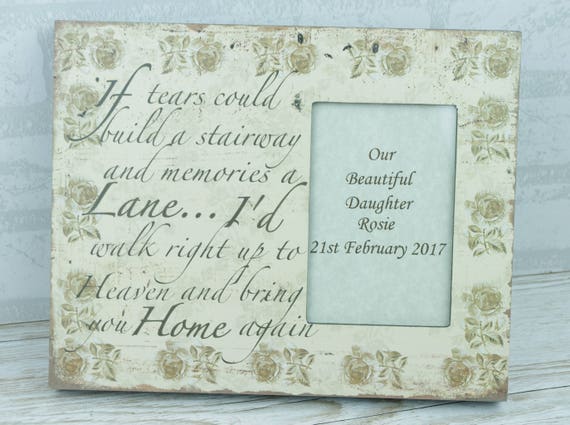 If tears could
build a stairway
and memories a
Lane... I'd
walk right up to
Heaven and bring
you Home again
Our
Beautiful
Daughter
Rosie
21st February 2017